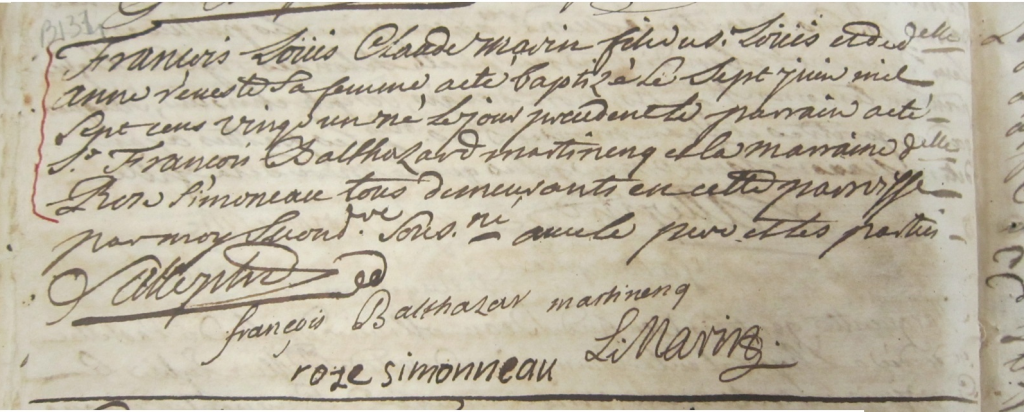 B137
François Loüis Claude marin fils du Sr. Loüis et de delle
anne reveste sa femme a eté baptizé le Sept juin mil
Sept cens vingt un né le jour precedent le parrain a eté
Sr. François Balthazard martinenq et la marraine delle
Roze simoneau tous demeurants en cette parroisse
par moy Second.re Sous.né avec le pere et les parties
françois Balthazar martinenq
L. Marin
roze simonneau